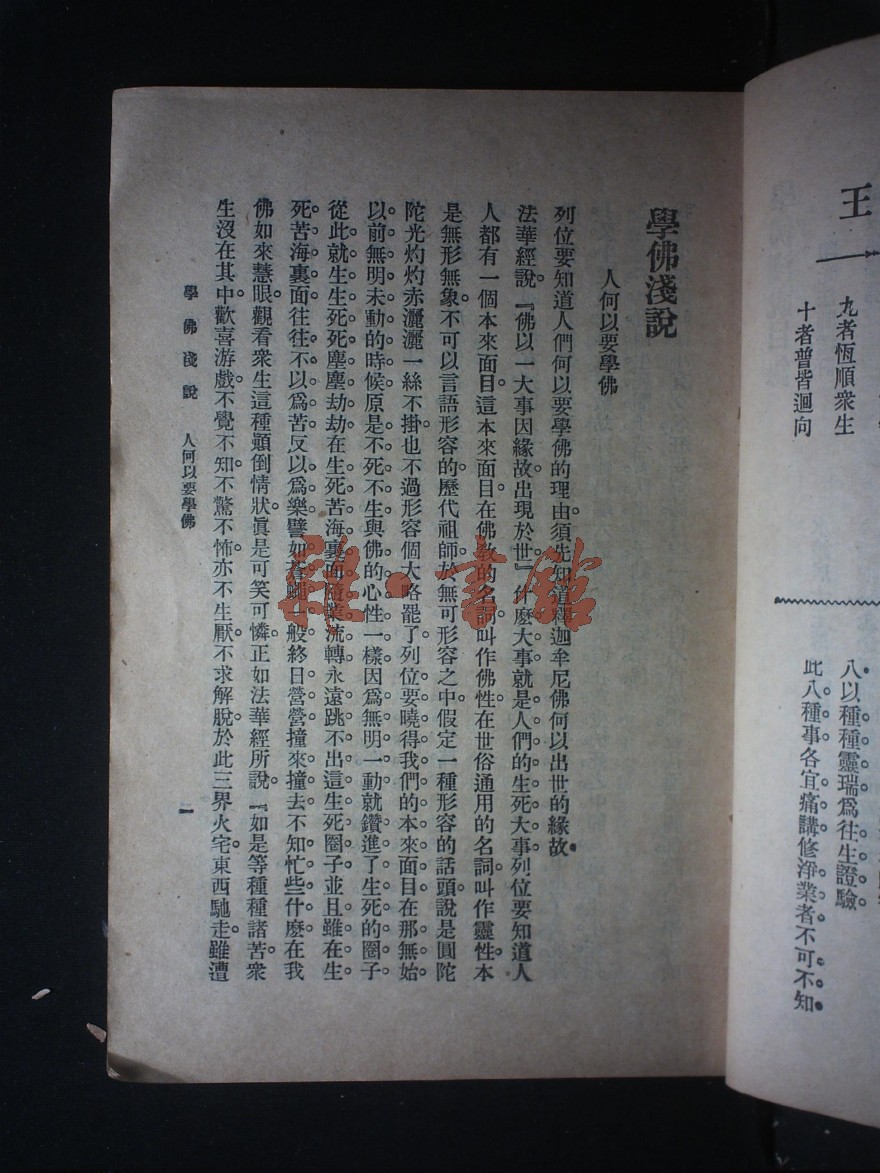 王
九者恆順衆生
十者普皆迴向
八以種種靈瑞爲往生證驗
此八種事各宜痛講修淨業者不可不知
學佛淺說
人何以要學佛
列位要知道人們何以要學佛的理由須先知道釋迦牟尼佛何以出世的緣故
法華經說『佛以一大事因緣故出現於世』什麽大事就是人們的生死大事列位要知道人
人都有一個本來面目這本來面目在佛教的名詞叫作佛性在世俗通用的名詞叫作靈性本
是無形無象不可以言語形容的歷代祖師於無可形容之中假定一種形容的話頭說是圓陀
陀光灼灼赤灑灑一絲不掛也不過形容個大略罷了列位要曉得我們的本來面目在那無始
以前無明未動的時候原是不死不生與佛的心性一樣因爲無明一動就鑽進了生死的圈子
從此就生生死死塵塵劫劫在生死苦海裏面隨業流轉永遠跳不出這生死圈子並且雖在生
死苦海裏面往往不以爲苦反以爲樂譬如蒼蠅一般終日營營撞來撞去不知忙些什麽在我
佛如來慧眼觀看衆生這種顚倒情狀眞是可笑可憐正如法華經所說『如是等種種諸苦衆
生沒在其中歡喜游戲不覺不知不驚不怖亦不生厭不求解脫於此三界火宅東西馳走雖遭
學佛淺說 人何以要學佛
一
雜·書館